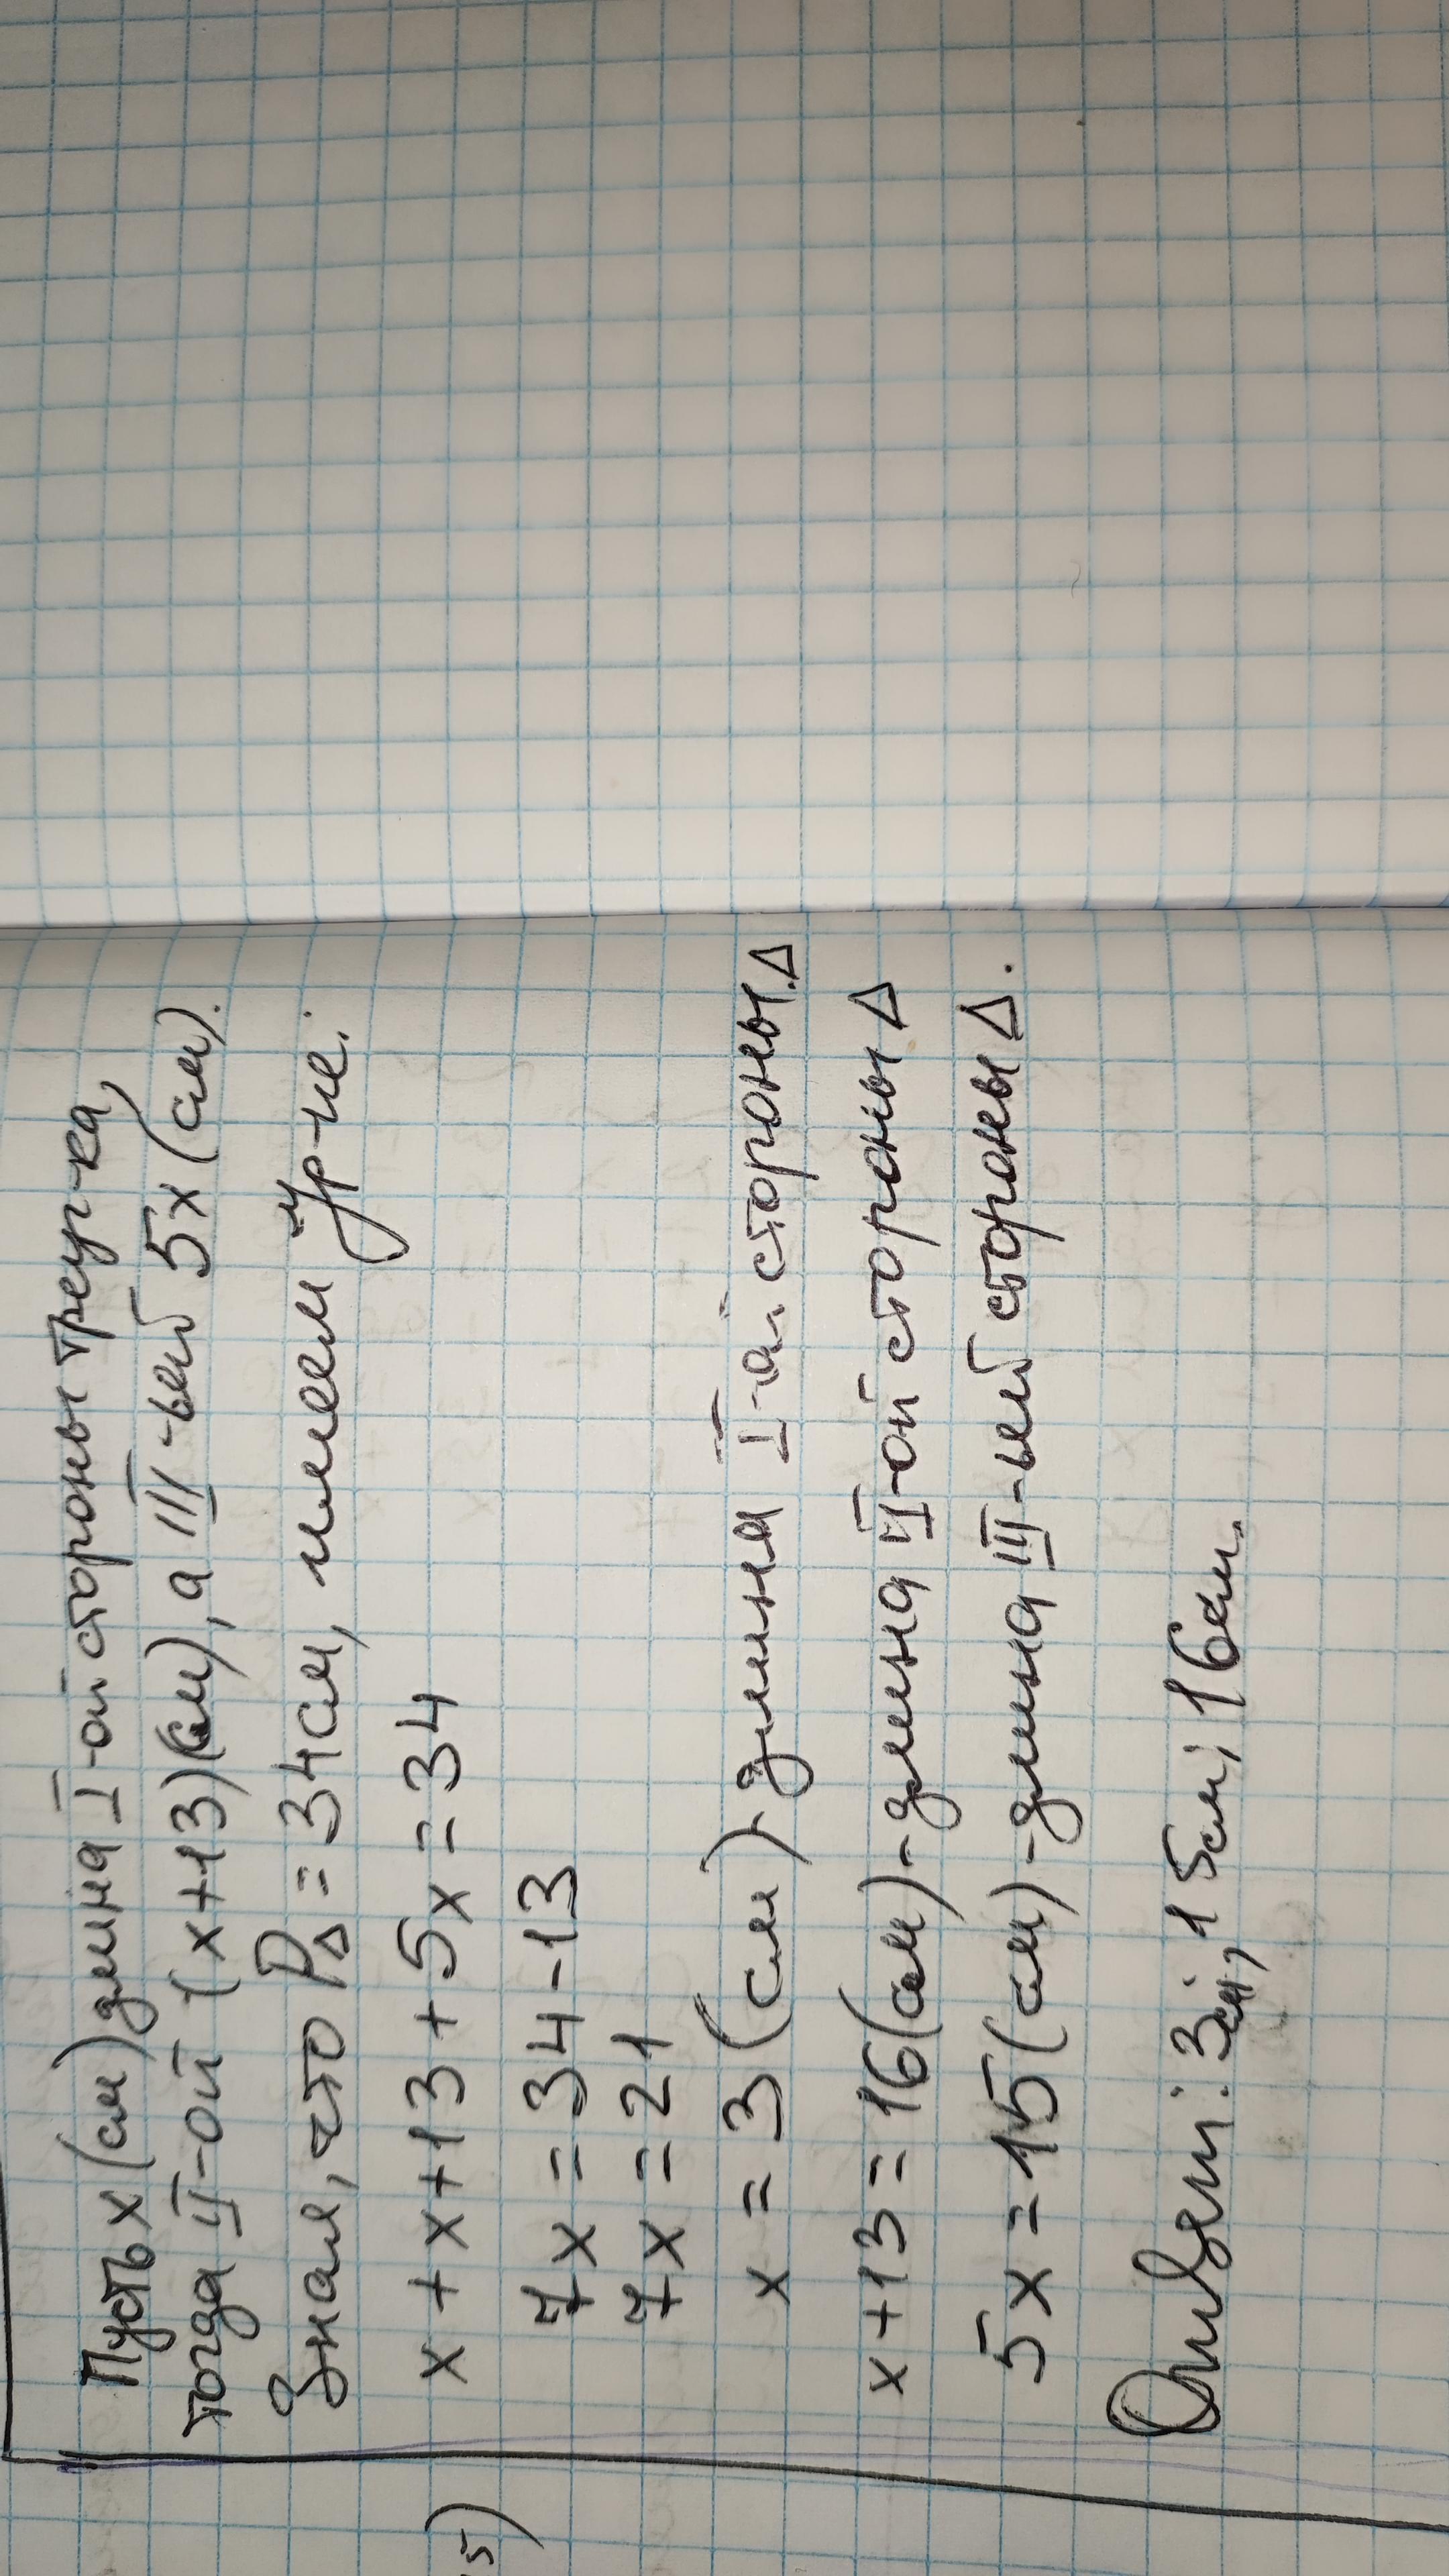 Пусть x (см) длина I-ой стороны треуг-ка,
тогда II-ой (x+13)(см), а III-ьей 5x (см).
Зная, что P△ = 34см, имеем ур-ие:
x + x+13 + 5x = 34
7x = 34-13
7x = 21
x = 3 (см) - длина I-ой стороны △
x+13 = 16(см) - длина II-ой стороны △
5x = 15(см) - длина III-ьей стороны △.
Ответ: 3см; 15см; 16см.
5)